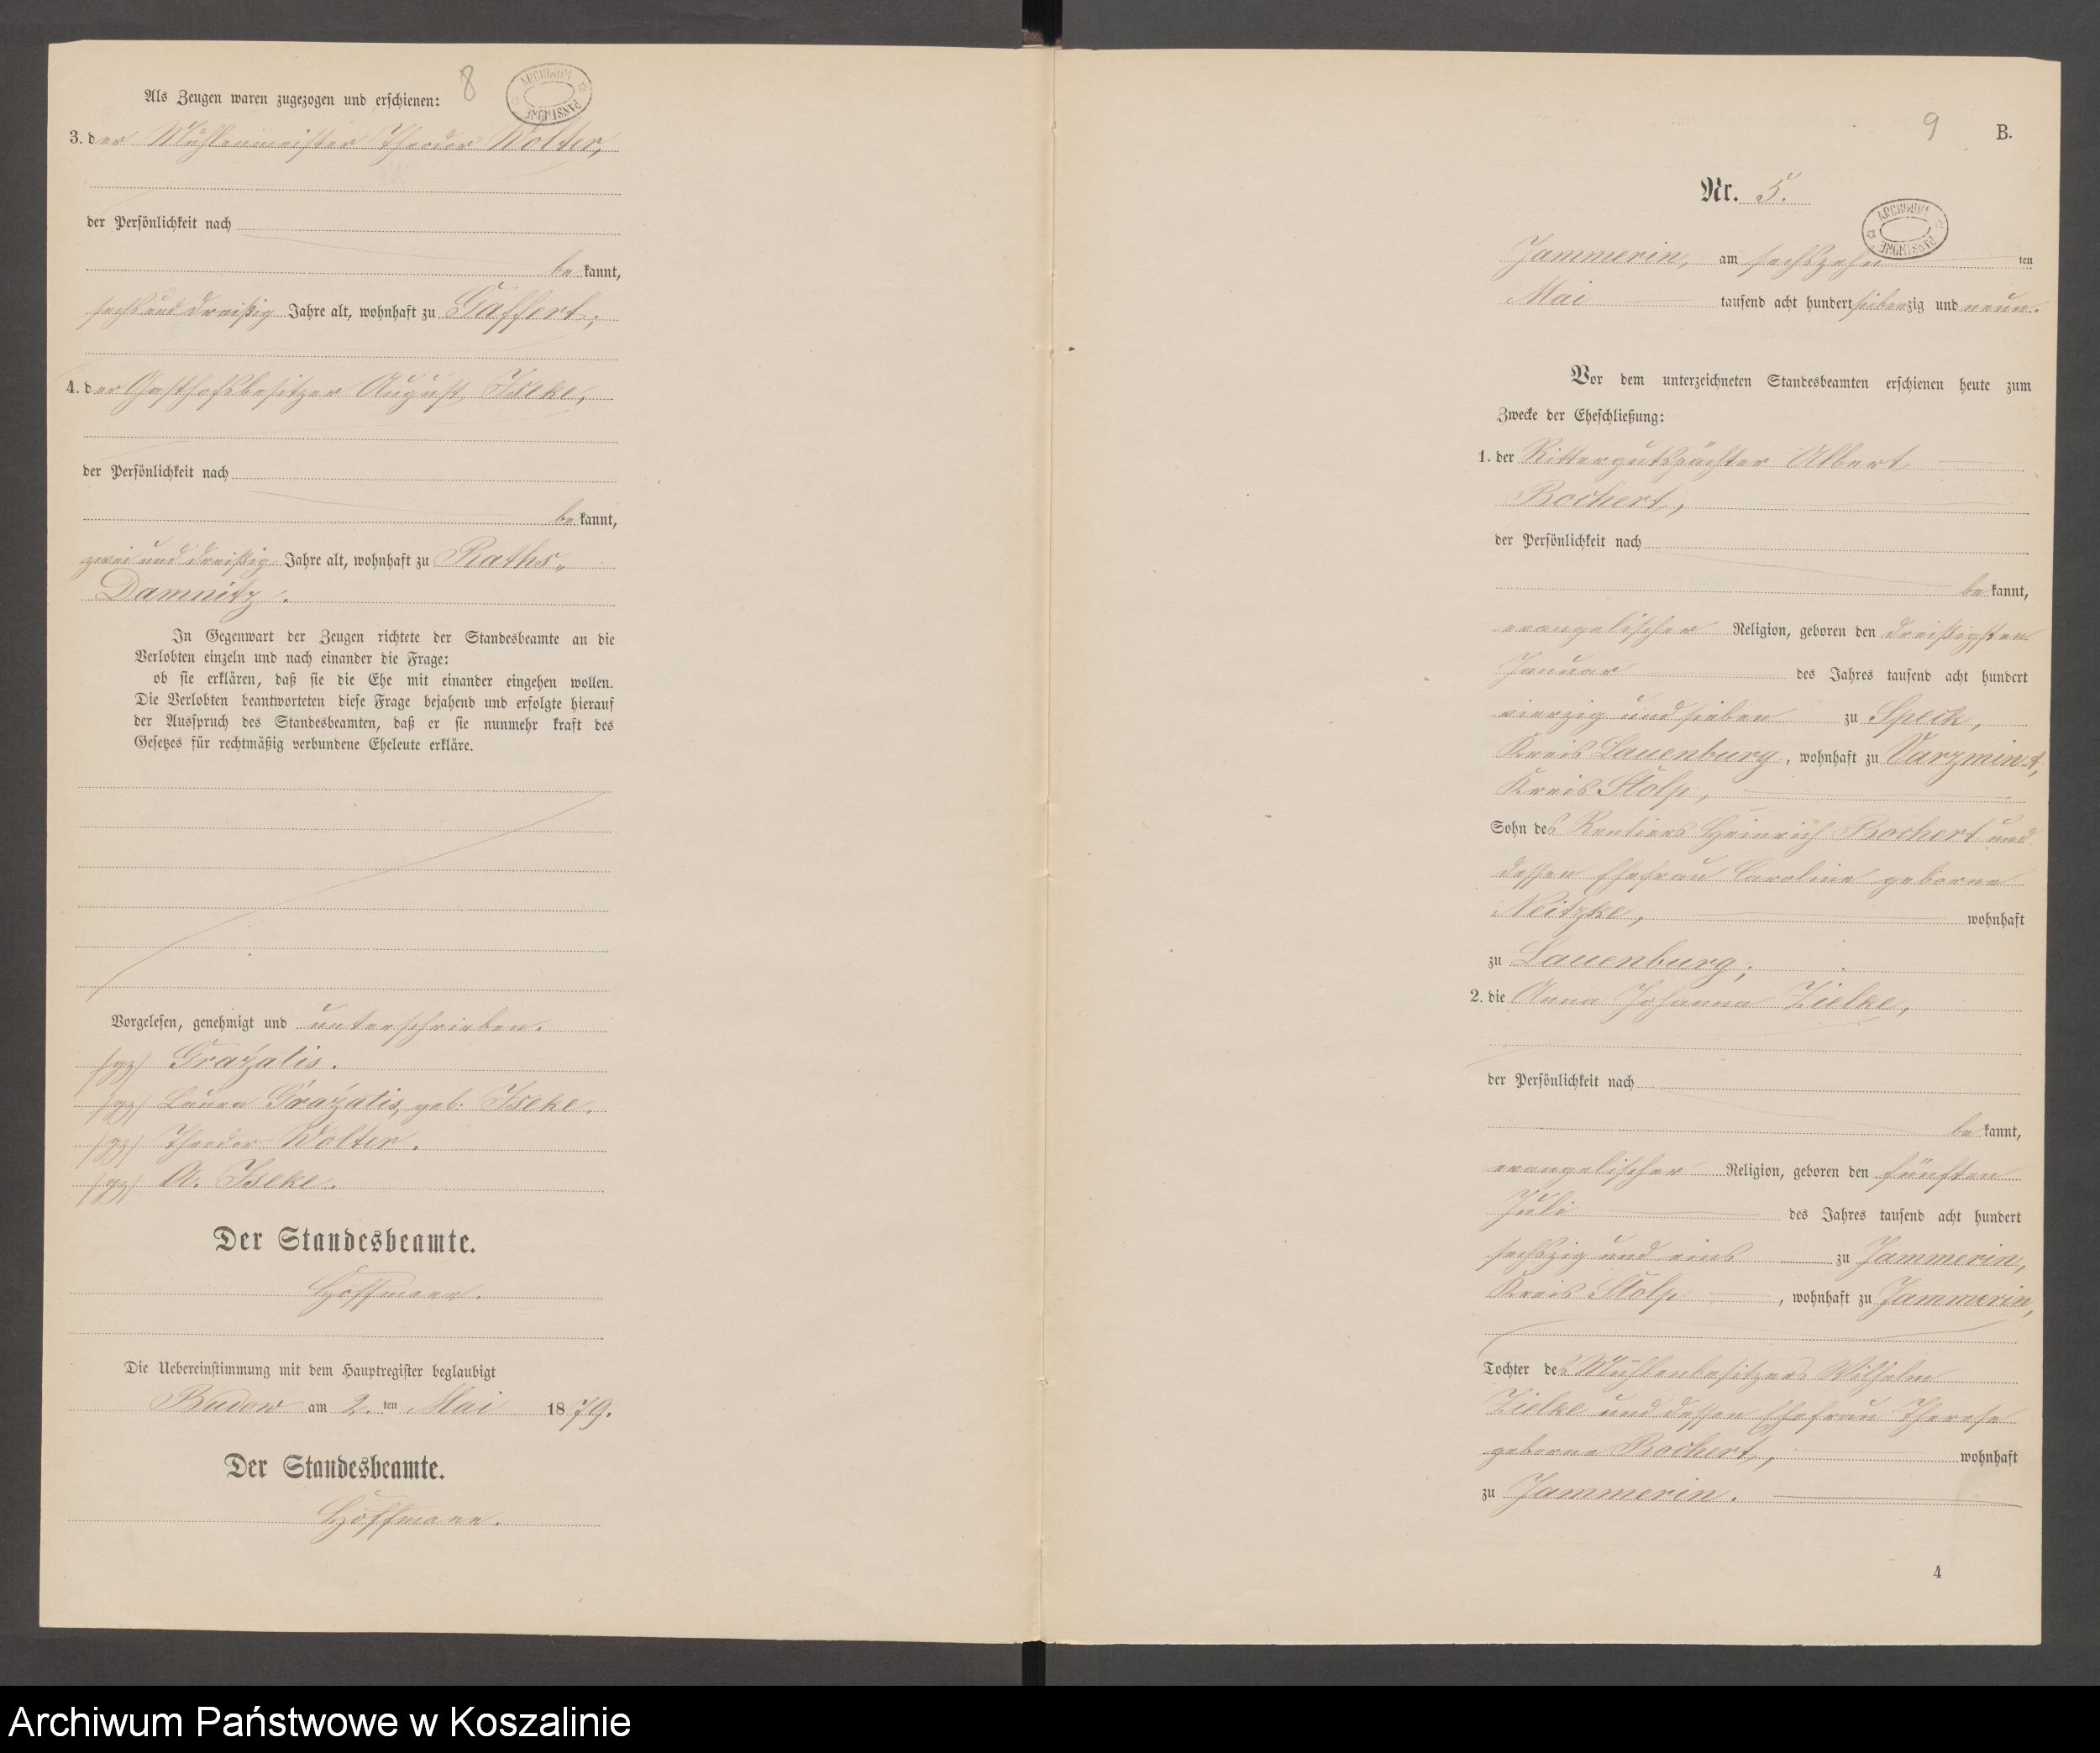 8
ARCHIWUM PAŃSTWOWE
Als Zeugen waren zugezogen und erschienen:
3. der Mühlenmeister Theodor Wolter,
der Persönlichkeit nach
bekannt,
sechs und dreißig Jahre alt, wohnhaft zu Gaffert;
4. der Gasthofsbesitzer August Iseke,
der Persönlichkeit nach
bekannt,
zwei und dreißig Jahre alt, wohnhaft zu Raths-
Damnitz.
In Gegenwart der Zeugen richtete der Standesbeamte an die
Verlobten einzeln und nach einander die Frage:
ob sie erklären, daß sie die Ehe mit einander eingehen wollen.
Die Verlobten beantworteten diese Frage bejahend und erfolgte hierauf
der Ausspruch des Standesbeamten, daß er sie nunmehr kraft des
Gesetzes für rechtmäßig verbundene Eheleute erkläre.
Vorgelesen, genehmigt und unterschrieben.
(gz) Grazatis.
(gz) Laura Grazatis, geb. Iseke.
(gz) Theodor Wolter.
(gz) A. Iseke.
Der Standesbeamte.
Hoffmann.
Die Uebereinstimmung mit dem Hauptregister beglaubigt
Budow am 2. ten Mai 1879.
Der Standesbeamte.
Hoffmann.
9 B.
Nr. 5.
ARCHIWUM PAŃSTWOWE
Jammerin, am sechszehn ten
Mai tausend acht hundert siebenzig und neun.
Vor dem unterzeichneten Standesbeamten erschienen heute zum
Zwecke der Eheschließung:
1. der Rittergutspächter Albert
Bochert,
der Persönlichkeit nach
bekannt,
evangelischer Religion, geboren den dreißigsten
Januar des Jahres tausend acht hundert
vierzig und sieben zu Speck,
Kreis Lauenburg, wohnhaft zu Varzmin,
Kreis Stolp,
Sohn des Rentiers Heinrich Bochert und
dessen Ehefrau Caroline geborne
Neitzke, wohnhaft
zu Lauenburg;
2. die Anna Johanna Zielke,
der Persönlichkeit nach
bekannt,
evangelischer Religion, geboren den fünften
Juli des Jahres tausend acht hundert
sechszig und eins zu Jammerin,
Kreis Stolp, wohnhaft zu Jammerin,
Tochter des Mühlenbesitzers Wilhelm
Zielke und dessen Ehefrau Therese
geborne Bochert, wohnhaft
zu Jammerin.
4
Archiwum Państwowe w Koszalinie